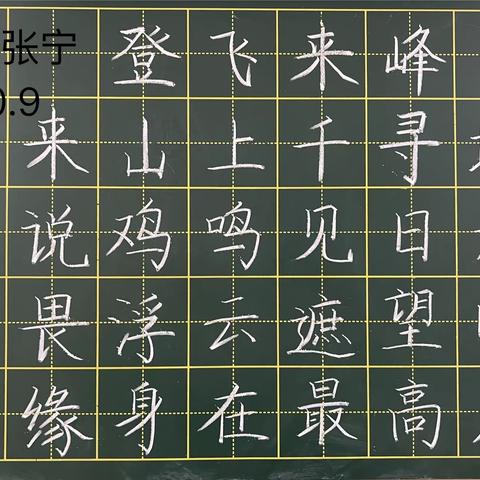 张宁
0.9
登飞来峰
来山上千寻
说鸡鸣见日
畏浮云遮望
缘身在最高